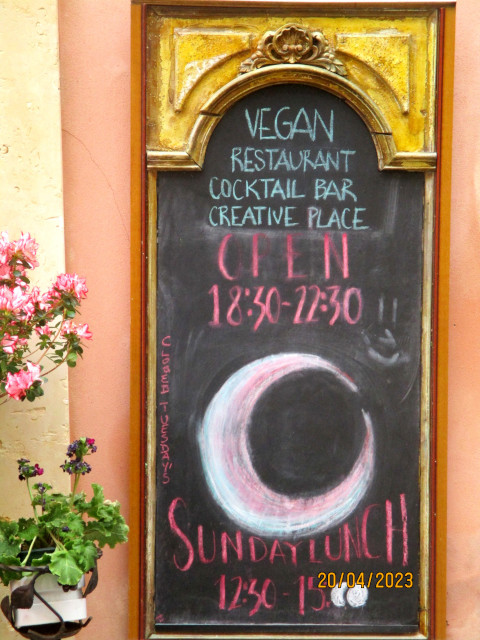 VEGAN
RESTAURANT
COCKTAIL BAR
CREATIVE PLACE
OPEN
18:30-22:30
CLOSED TUESDAYS
SUNDAY LUNCH
12:30 - 15:00
20/04/2023